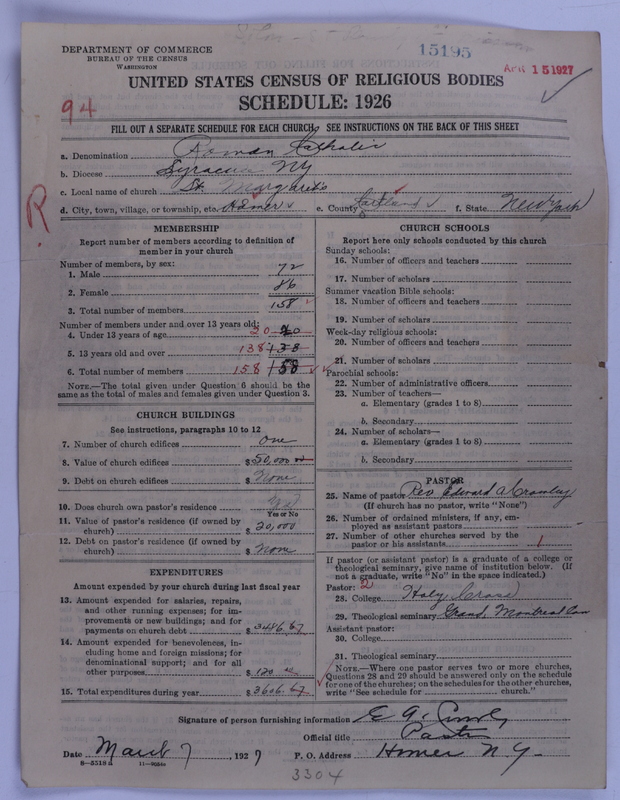 DEPARTMENT OF COMMERCE
BUREAU OF THE CENSUS
WASHINGTON
15195
APR 15 1927
UNITED STATES CENSUS OF RELIGIOUS BODIES
SCHEDULE: 1926
94
FILL OUT A SEPARATE SCHEDULE FOR EACH CHURCH. SEE INSTRUCTIONS ON THE BACK OF THIS SHEET
a. Denomination Roman Catholic
b. Diocese Syracuse NY
c. Local name of church St. Margaret's
d. City, town, village, or township, etc. Homer e. County Cortland f. State New York
R
MEMBERSHIP
Report number of members according to definition of member in your church
Number of members, by sex:
1. Male 72
2. Female 86
3. Total number of members 158
Number of members under and over 13 years old:
4. Under 13 years of age 20 20
5. 13 years old and over 138 138
6. Total number of members 158 158
NOTE.—The total given under Question 6 should be the same as the total of males and females given under Question 3.
CHURCH BUILDINGS
See instructions, paragraphs 10 to 12
7. Number of church edifices one
8. Value of church edifices $50,000 00
9. Debt on church edifices $ None
10. Does church own pastor's residence Yes
Yes or No
11. Value of pastor's residence (if owned by church) $ 20,000
12. Debt on pastor's residence (if owned by church) $ None
EXPENDITURES
Amount expended by your church during last fiscal year
13. Amount expended for salaries, repairs, and other running expenses; for improvements or new buildings; and for payments on church debt $ 3486.67
14. Amount expended for benevolences, including home and foreign missions; for denominational support; and for all other purposes $ 120 00
15. Total expenditures during year $ 3606.67
CHURCH SCHOOLS
Report here only schools conducted by this church
Sunday schools:
16. Number of officers and teachers
17. Number of scholars
Summer vacation Bible schools:
18. Number of officers and teachers
19. Number of scholars
Week-day religious schools:
20. Number of officers and teachers
21. Number of scholars
Parochial schools:
22. Number of administrative officers
23. Number of teachers—
a. Elementary (grades 1 to 8)
b. Secondary
24. Number of scholars—
a. Elementary (grades 1 to 8)
b. Secondary
PASTOR
25. Name of pastor Rev. Edward A Crowley
(If church has no pastor, write "None")
26. Number of ordained ministers, if any, employed as assistant pastors
27. Number of other churches served by the pastor or his assistants 1
If pastor (or assistant pastor) is a graduate of a college or theological seminary, give name of institution below. (If not a graduate, write "No" in the space indicated.)
Pastor: 2
28. College Holy Cross
29. Theological seminary Grand, Montreal Can
Assistant pastor:
30. College
31. Theological seminary
NOTE.—Where one pastor serves two or more churches, Questions 28 and 29 should be answered only on the schedule for one of the churches; on the schedules for the other churches, write "See schedule for church."
Signature of person furnishing information
Official title Pastor
Date March 7, 1927 P. O. Address Homer N Y
8—5518a 11—9084a
3304